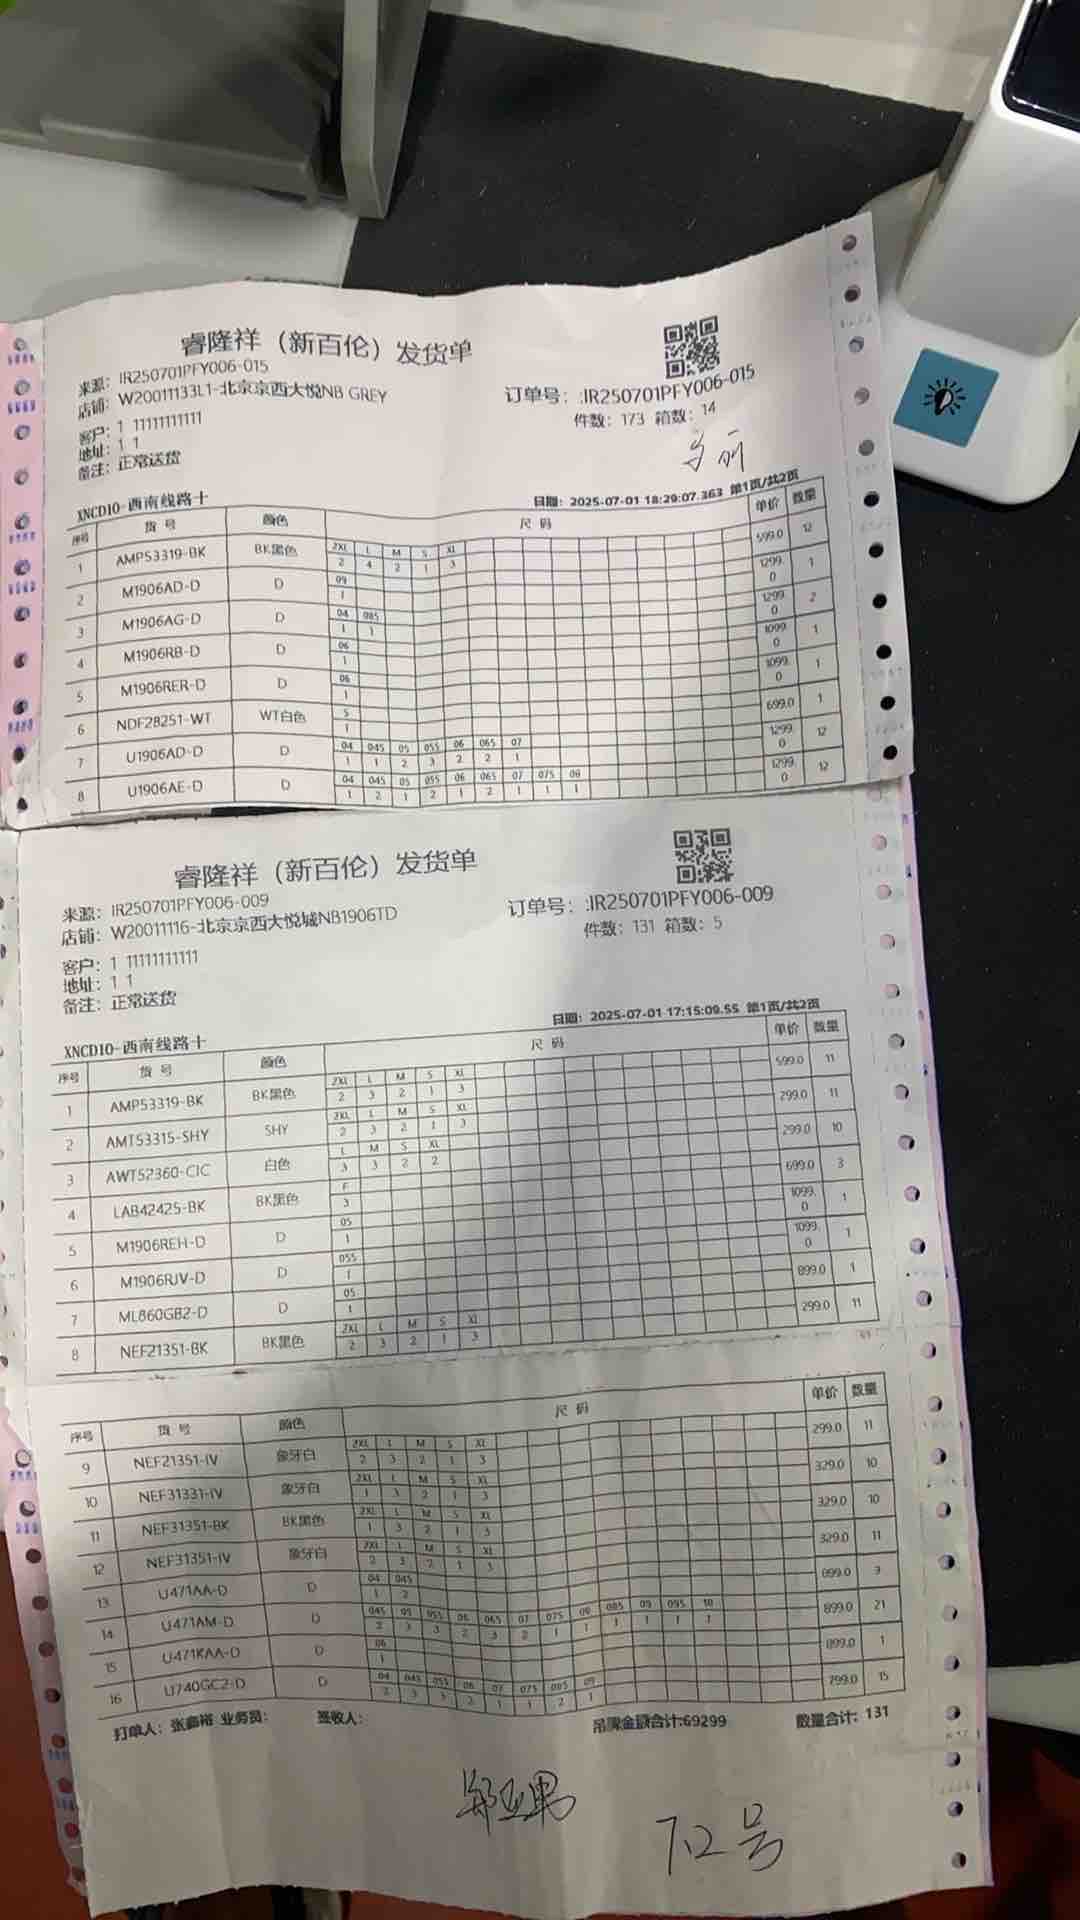 睿隆祥（新百伦）发货单
来源：IR250701PFY006-015
店铺：W20011133L1-北京京西大悦NB GREY
订单号：:IR250701PFY006-015
件数：173 箱数：14
客户：1 11111111111
地址：1 1
备注：正常送货
XNCD10-西南线路十
日期：2025-07-01 18:29:07.363 第1页/共2页
序号 货 号 颜色 尺 码 单价 数量
2XL L M S XL
1 AMP53319-BK BK黑色 2 4 2 1 3 599.0 12
09
2 M1906AD-D D 1 1299.0 1
04 085
3 M1906AG-D D 1 1 1299.0 2
06
4 M1906RB-D D 1 1099.0 1
06
5 M1906RER-D D 1 1099.0 1
S
6 NDF28251-WT WT白色 1 699.0 1
04 045 05 055 06 065 07
7 U1906AD-D D 1 1 2 3 2 2 1 1299.0 12
04 045 05 055 06 065 07 075 08
8 U1906AE-D D 1 2 1 2 1 2 1 1 1 1299.0 12
睿隆祥（新百伦）发货单
来源：IR250701PFY006-009
店铺：W20011116-北京京西大悦城NB1906TD
订单号：:IR250701PFY006-009
件数：131 箱数：5
客户：1 11111111111
地址：1 1
备注：正常送货
XNCD10-西南线路十
日期：2025-07-01 17:15:09.55 第1页/共2页
序号 货 号 颜色 尺 码 单价 数量
2XL L M S XL
1 AMP53319-BK BK黑色 2 3 2 1 3 599.0 11
2XL L M S XL
2 AMT53315-SHY SHY 2 3 2 1 3 299.0 11
L M S XL
3 AWT52360-CIC 白色 3 3 2 2 299.0 10
F
4 LAB42425-BK BK黑色 3 699.0 3
05
5 M1906REH-D D 1 1099.0 1
055
6 M1906RJV-D D 1 1099.0 1
05
7 ML860GB2-D D 1 899.0 1
2XL L M S XL
8 NEF21351-BK BK黑色 2 3 2 1 3 299.0 11
序号 货 号 颜色 尺 码 单价 数量
2XL L M S XL
9 NEF21351-IV 象牙白 2 3 2 1 3 299.0 11
2XL L M S XL
10 NEF31331-IV 象牙白 1 3 2 1 3 329.0 10
2XL L M S XL
11 NEF31351-BK BK黑色 1 3 2 1 3 329.0 10
2XL L M S XL
12 NEF31351-IV 象牙白 2 3 2 1 3 329.0 11
04 045
13 U471AA-D D 1 2 899.0 3
045 05 055 06 065 07 075 08 085 09 095 10
14 U471AM-D D 2 3 3 2 3 2 1 1 1 1 1 1 899.0 21
06
15 U471KAA-D D 1 899.0 1
04 045 055 06 07 075 085 09
16 U740GC2-D D 2 3 3 2 1 1 2 1 799.0 15
打单人：张鑫裕 业务员： 签收人： 吊牌金额合计:69299 数量合计：131
郑亚男
7.2号